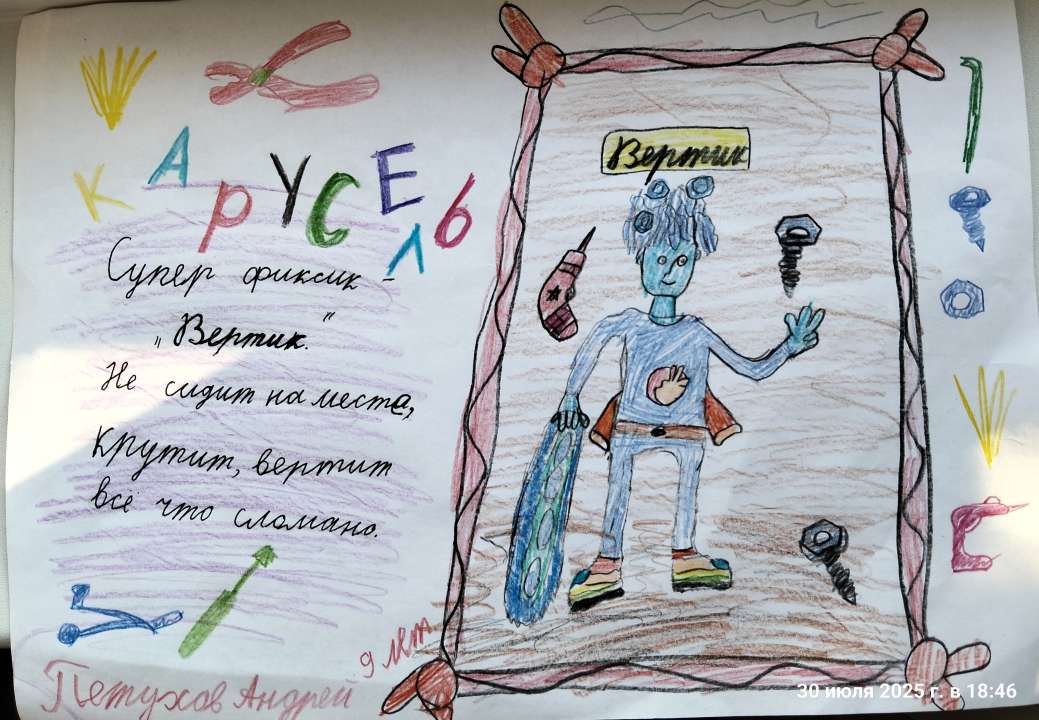 КАРУСЕЛЬ
Супер фиксик -
"Вертик."
Не сидит на месте,
крутит, вертит
всё что сломано.
9 лет
Петухов Андрей
Вертик
30 июля 2025 г. в 18:46